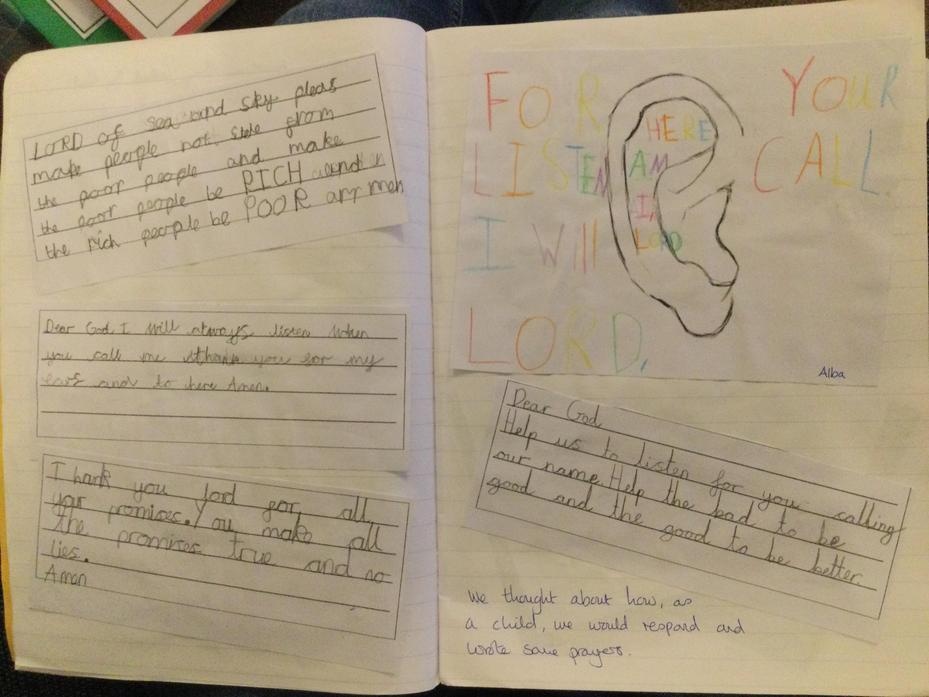 LORD of sea and sky pleas
make people not stele from
the poor people and make
the poor people be RICH and
the rich people be POOR armen
Dear God I will always listen when
you call me thank you for my
ears and to here Amen.
Thank you lord for all
your promises. You make all
the promises true and no
lies.
Amen
FOR YOUR
LISTEN CALL
I WIll
LORD.
HERE
AM
I,
LORD
Alba
Dear God,
Help us to listen for you calling
our name. Help the bad to be
good and the good to be better
We thought about how, as
a child, we would respond and
wrote some prayers.